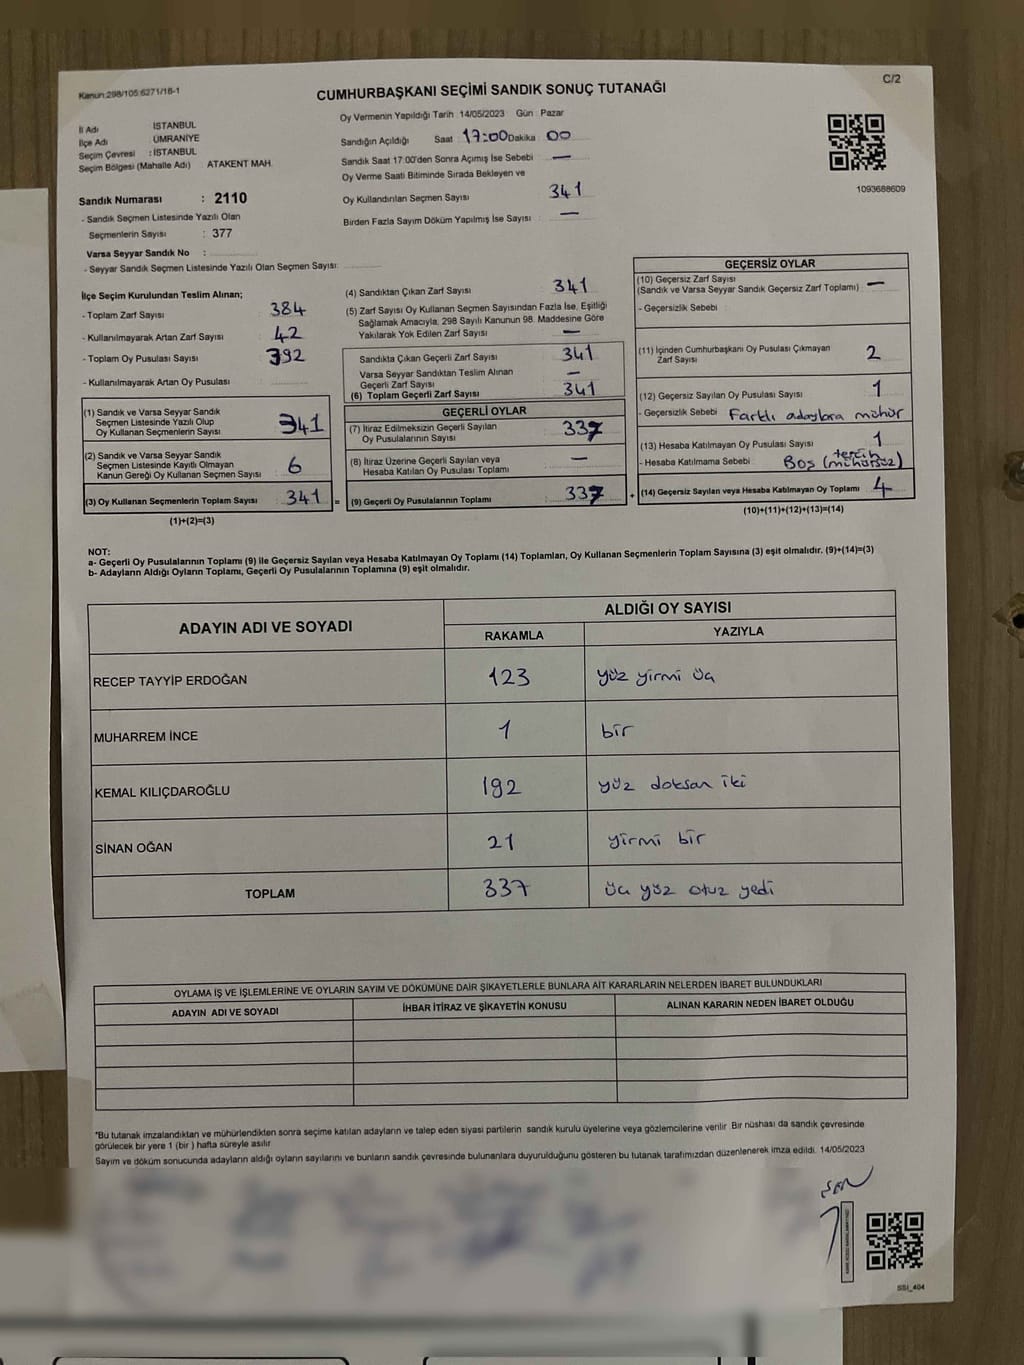 Kanun:298/105:6271/16-1
C/2
CUMHURBAŞKANI SEÇİMİ SANDIK SONUÇ TUTANAĞI
Oy Vermenin Yapıldığı Tarih :14/05/2023 Gün : Pazar
İl Adı İSTANBUL
İlçe Adı :ÜMRANİYE
Seçim Çevresi : İSTANBUL
Seçim Bölgesi (Mahalle Adı) ATAKENT MAH.
Sandık Numarası : 2110
- Sandık Seçmen Listesinde Yazılı Olan
Seçmenlerin Sayısı : 377
Varsa Seyyar Sandık No :
- Seyyar Sandık Seçmen Listesinde Yazılı Olan Seçmen Sayısı:
Sandığın Açıldığı Saat 17:00 Dakika 00
Sandık Saat 17:00'den Sonra Açımış İse Sebebi —
Oy Verme Saati Bitiminde Sırada Bekleyen ve
Oy Kullandırılan Seçmen Sayısı 341
Birden Fazla Sayım Döküm Yapılmış İse Sayısı —
1093688609
İlçe Seçim Kurulundan Teslim Alınan;
- Toplam Zarf Sayısı 384
- Kullanılmayarak Artan Zarf Sayısı 42
- Toplam Oy Pusulası Sayısı 392
- Kullanılmayarak Artan Oy Pusulası
(1) Sandık ve Varsa Seyyar Sandık
Seçmen Listesinde Yazılı Olup
Oy Kullanan Seçmenlerin Sayısı 341
(2) Sandık ve Varsa Seyyar Sandık
Seçmen Listesinde Kayıtlı Olmayan
Kanun Gereği Oy Kullanan Seçmen Sayısı 6
(3) Oy Kullanan Seçmenlerin Toplam Sayısı 341 =
(1)+(2)=(3)
(4) Sandıktan Çıkan Zarf Sayısı 341
(5) Zarf Sayısı Oy Kullanan Seçmen Sayısından Fazla İse, Eşitliği
Sağlamak Amacıyla, 298 Sayılı Kanunun 98. Maddesine Göre
Yakılarak Yok Edilen Zarf Sayısı —
Sandıkta Çıkan Geçerli Zarf Sayısı 341
Varsa Seyyar Sandıktan Teslim Alınan
Geçerli Zarf Sayısı —
(6) Toplam Geçerli Zarf Sayısı 341
GEÇERLİ OYLAR
(7) İtiraz Edilmeksizin Geçerli Sayılan
Oy Pusulalarının Sayısı 337
(8) İtiraz Üzerine Geçerli Sayılan veya
Hesaba Katılan Oy Pusulası Toplamı —
(9) Geçerli Oy Pusulalarının Toplamı 337 +
GEÇERSİZ OYLAR
(10) Geçersiz Zarf Sayısı
(Sandık ve Varsa Seyyar Sandık Geçersiz Zarf Toplamı) —
- Geçersizlik Sebebi
(11) İçinden Cumhurbaşkanı Oy Pusulası Çıkmayan
Zarf Sayısı 2
(12) Geçersiz Sayılan Oy Pusulası Sayısı 1
- Geçersizlik Sebebi Farklı adaylara mühür
(13) Hesaba Katılmayan Oy Pusulası Sayısı 1
- Hesaba Katılmama Sebebi Boş tercih (mühürsüz)
(14) Geçersiz Sayılan veya Hesaba Katılmayan Oy Toplamı 4
(10)+(11)+(12)+(13)=(14)
NOT:
a- Geçerli Oy Pusulalarının Toplamı (9) ile Geçersiz Sayılan veya Hesaba Katılmayan Oy Toplamı (14) Toplamları, Oy Kullanan Seçmenlerin Toplam Sayısına (3) eşit olmalıdır. (9)+(14)=(3)
b- Adayların Aldığı Oyların Toplamı, Geçerli Oy Pusulalarının Toplamına (9) eşit olmalıdır.
ADAYIN ADI VE SOYADI ALDIĞI OY SAYISI
RAKAMLA YAZIYLA
RECEP TAYYİP ERDOĞAN 123 yüz yirmi üç
MUHARREM İNCE 1 bir
KEMAL KILIÇDAROĞLU 192 yüz doksan iki
SİNAN OĞAN 21 yirmi bir
TOPLAM 337 üç yüz otuz yedi
OYLAMA İŞ VE İŞLEMLERİNE VE OYLARIN SAYIM VE DÖKÜMÜNE DAİR ŞİKAYETLERLE BUNLARA AİT KARARLARIN NELERDEN İBARET BULUNDUKLARI
ADAYIN ADI VE SOYADI İHBAR İTİRAZ VE ŞİKAYETİN KONUSU ALINAN KARARIN NEDEN İBARET OLDUĞU
*Bu tutanak imzalandıktan ve mühürlendikten sonra seçime katılan adayların ve talep eden siyasi partilerin sandık kurulu üyelerine veya gözlemcilerine verilir. Bir nüshası da sandık çevresinde
görülecek bir yere 1 (bir) hafta süreyle asılır
Sayım ve döküm sonucunda adayların aldığı oyların sayılarını ve bunların sandık çevresinde bulunanlara duyurulduğunu gösteren bu tutanak tarafımızdan düzenlenerek imza edildi. 14/05/2023
SSI_404